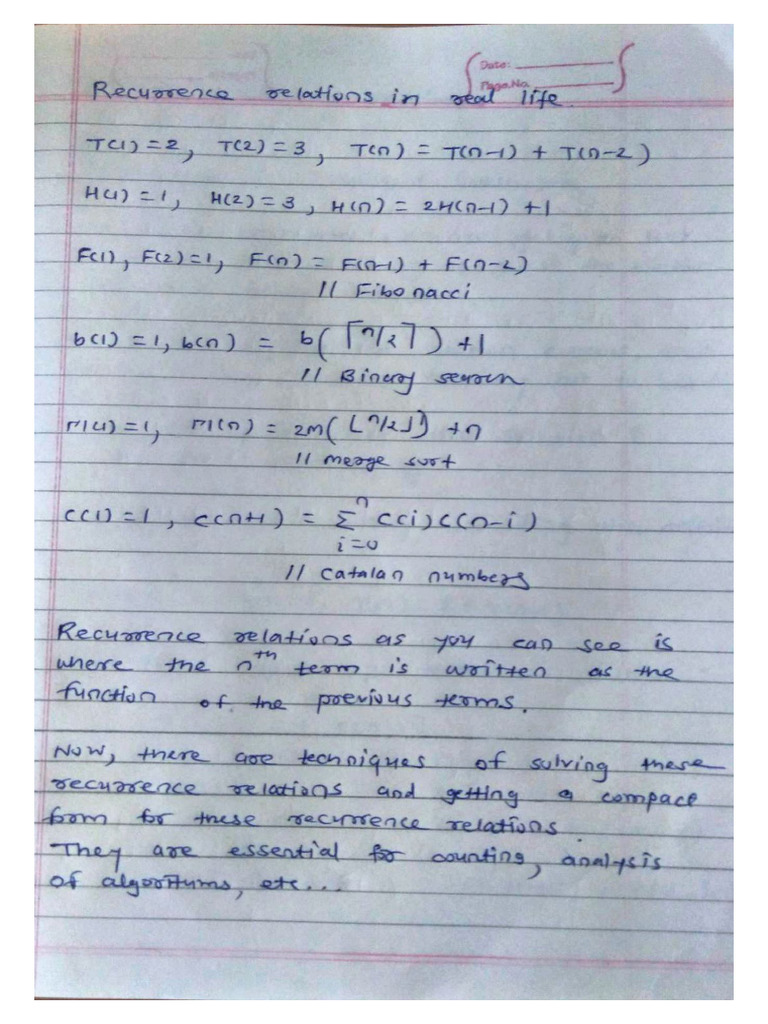 Date:
Page No.
Recurrence relations in real life.
T(1) = 2, T(2) = 3, T(n) = T(n-1) + T(n-2)
H(1) = 1, H(2) = 3, H(n) = 2H(n-1) + 1
F(1), F(2) = 1, F(n) = F(n-1) + F(n-2)
// Fibonacci
b(1) = 1, b(n) = b(⌈n/2⌉) + 1
// Binary search
M(1) = 1, M(n) = 2M(⌊n/2⌋) + n
// merge sort
C(1) = 1, C(n+1) = Σ C(i) C(n-i)
n
i=0
// Catalan numbers
Recurrence relations as you can see is
where the nth term is written as the
function of the previous terms.
Now, there are techniques of solving these
recurrence relations and getting a compact
form for these recurrence relations.
They are essential for counting, analysis
of algorithms, etc...